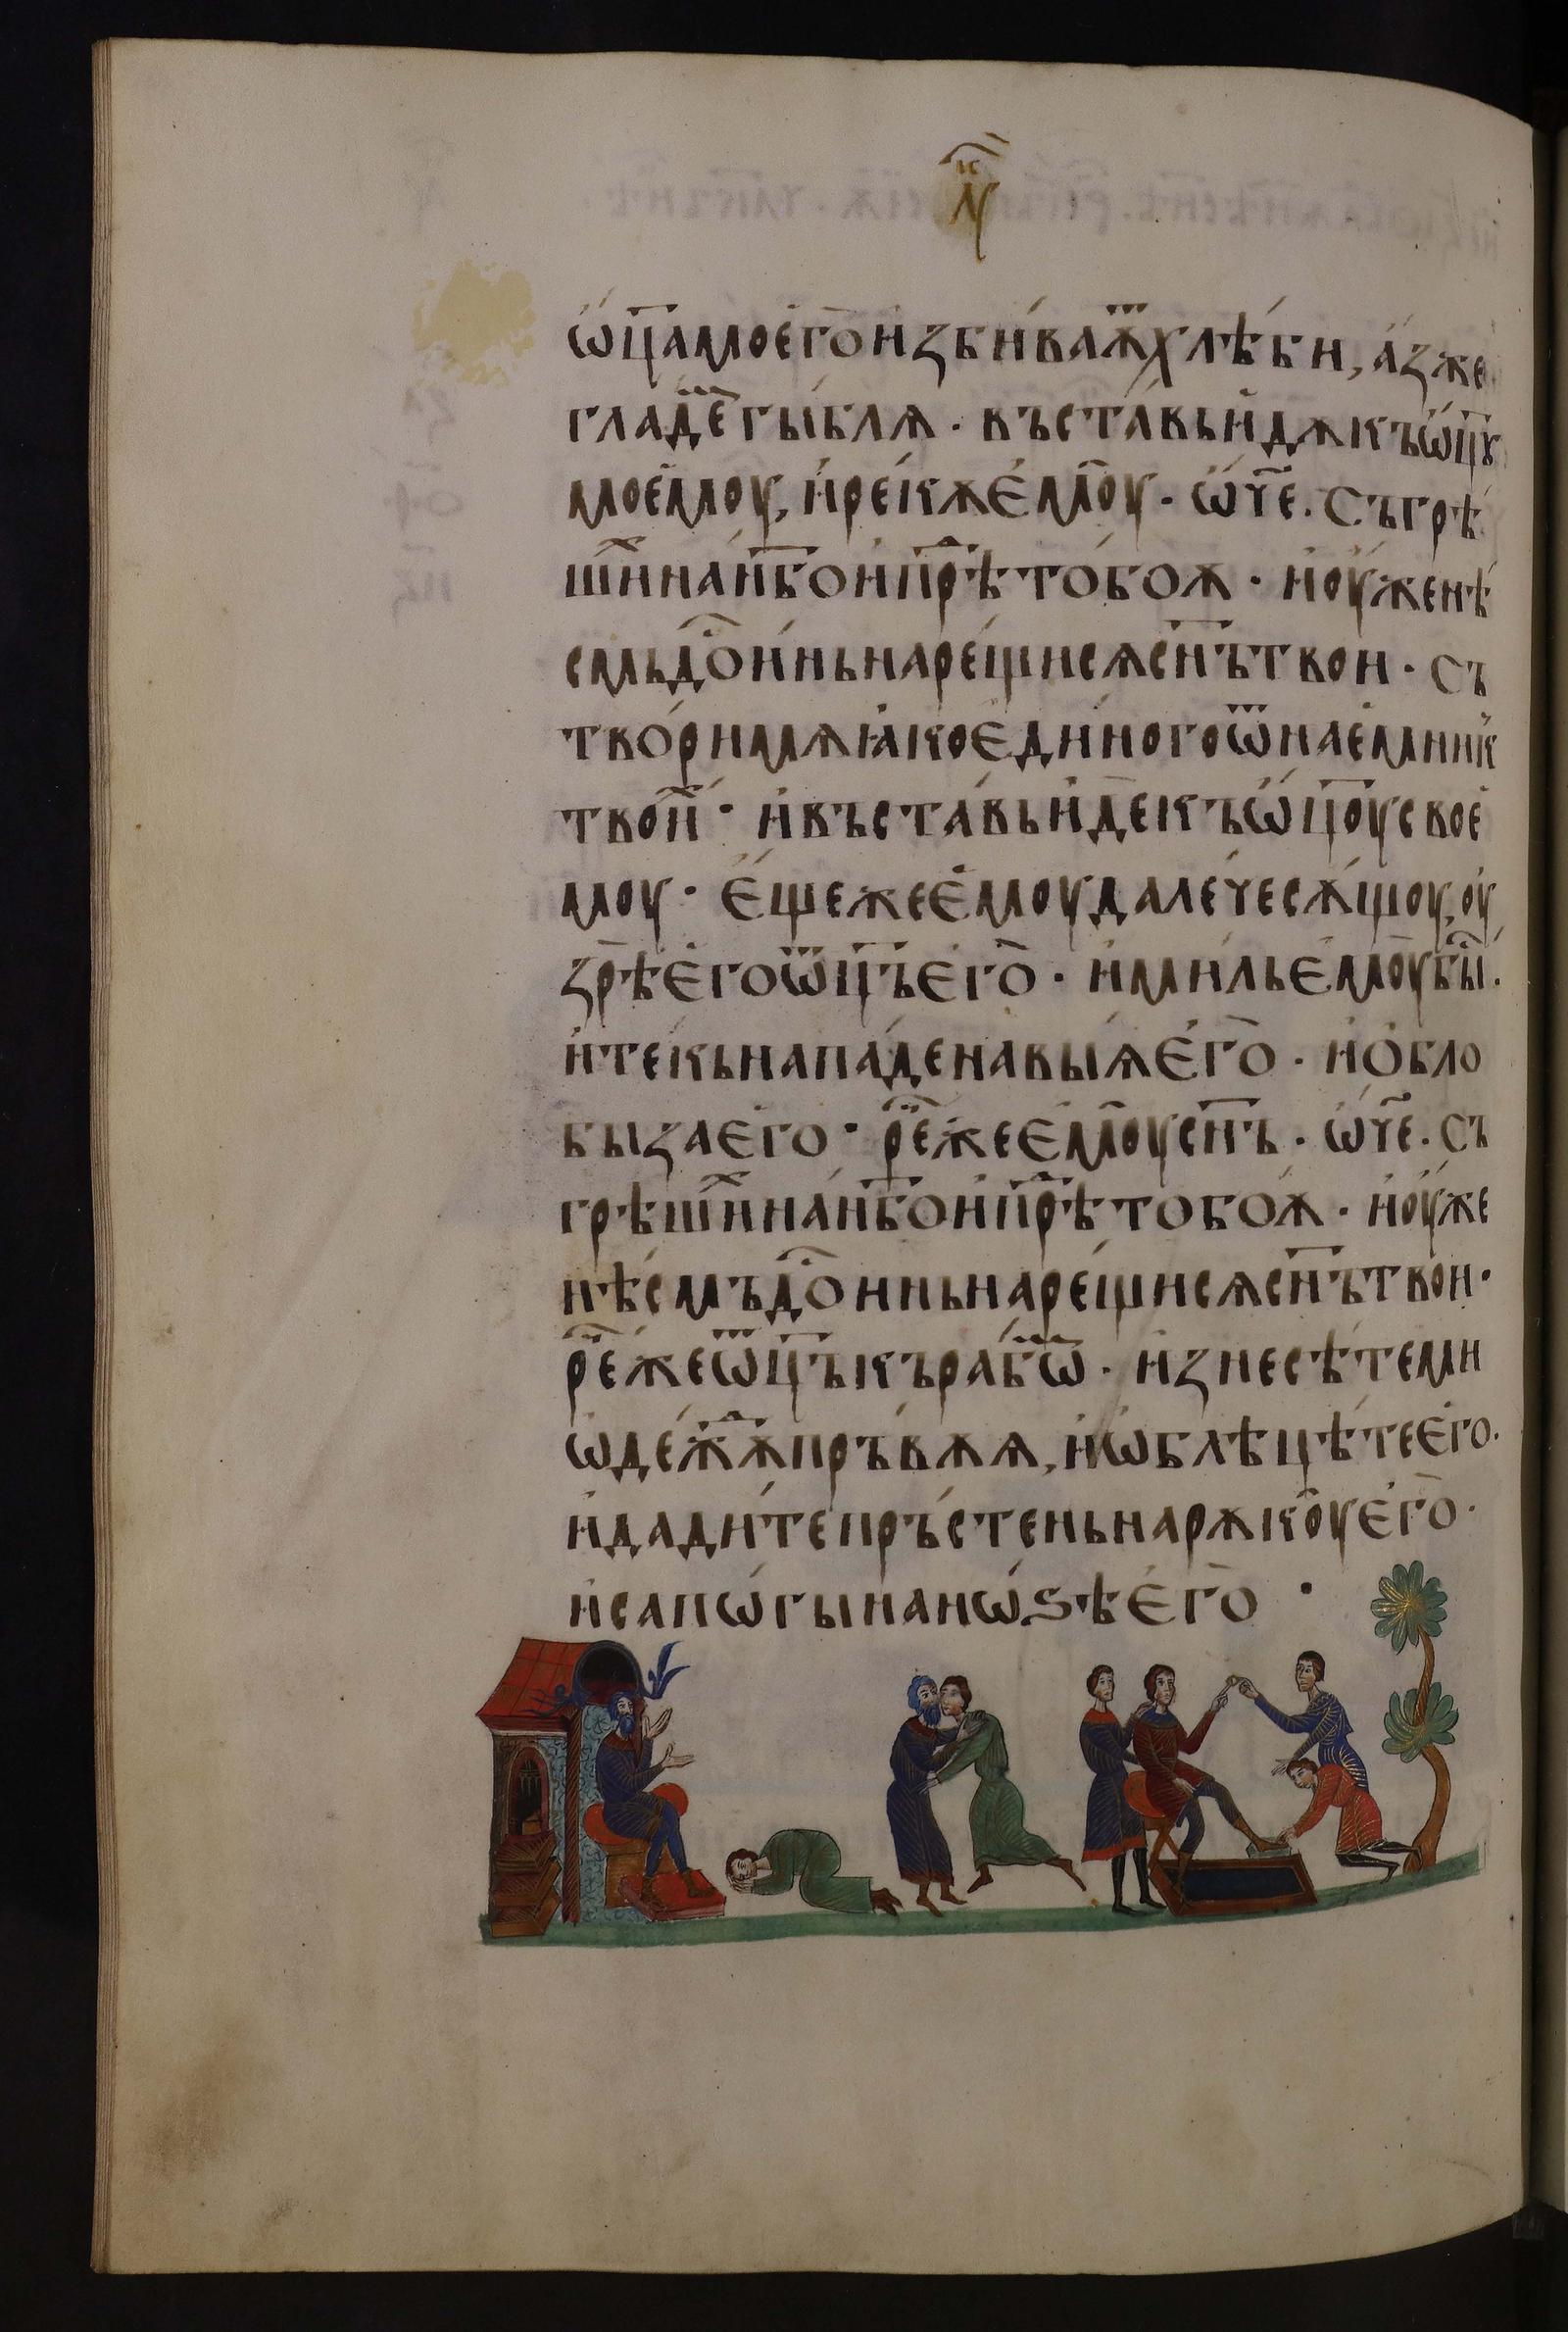 л҃к
ѡ҆ц҃а мое҆го̀ и҆збы́ваѫ҆ хлѣ́би, а҆́з же
гладе гы́блѧ · въста́вь и҆дѫ къ ѡ҆ц҃ꙋ
мое҆моу, и҆ рекѫ є҆моу · ѡ҆ч҃е · Съгрѣ
ши на н҃бо и҆ прѣ тобоѫ · и҆ оу҆же нѣ
смь дои́нь нарещи сѧ сн҃ъ твои · съ
твори мѧ ꙗ҆ко є҆ди́ного ѿ нае҆мник
твои · и҆ въста́вь и҆де къ ѡ҆ц҃оу свое҆
моу · є҆ще же є҆моу дале́че сѫ́щоу, оу҆
зрѣ є҆го ѡ҆ц҃ъ є҆го · и҆ ми́ль є҆моу бы ·
и҆ текь нападе на выѧ є҆го · и҆ о҆бло
быза є҆го · ре же є҆моу сн҃ъ · ѡ҆ч҃е · съ
грѣши на н҃бо и҆ прѣ тобоѫ · и҆ оу҆же
нѣ́смъ доинь нарещи сѧ сн҃ъ твои ·
ре же ѡ҆ц҃ъ къ рабѡ · и҆знесѣ́те ми
ѡ҆дежѫ пръвѫѧ, и҆ ѡ҆блѣцѣ́те є҆го ·
и҆ дади́те пръ́стень на рѫкоу є҆го ·
и҆ сапѡ́гы на нѡ́ѕѣ є҆го ·